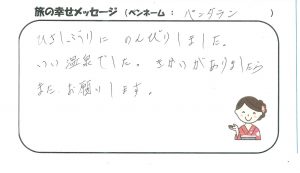 旅の幸せメッセージ (ペンネーム : ペンタラン )
ひさしぶりに のんびりしました。
いい温泉でした。きかいがありましたら
また お願いします。